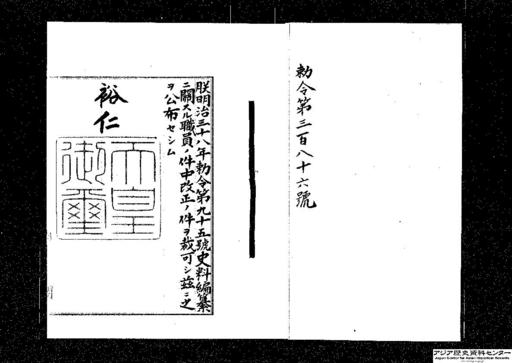 勅令第三百八十六號
朕明治三十八年勅令第九十五號史料編纂
ニ關スル職員ノ件中改正ノ件ヲ裁可シ茲ニ之
ヲ公布セシム
裕仁
天皇
御璽
アジア歴史資料センター
Japan Center for Asian Historical Records